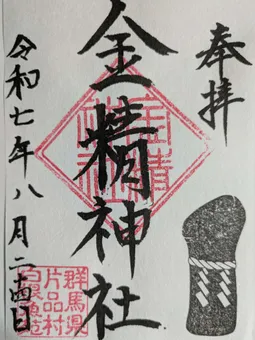 奉拝
金精神社
令和七年八月二十四日
群馬県
片品村
白根魚苑